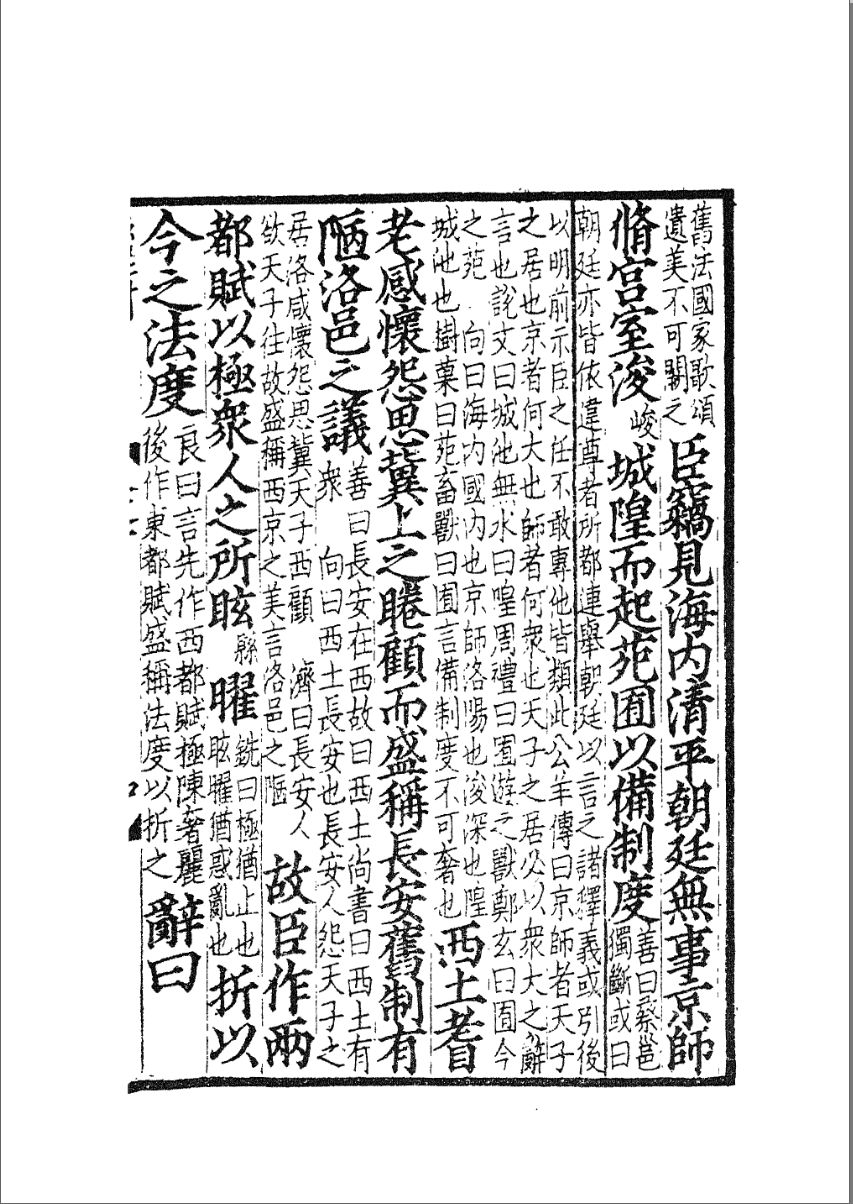 舊法國家歌頌
遺美不可闕之
臣竊見海内清平朝廷無事京師
脩宫室浚峻城隍而起苑囿以備制度
善曰蔡邕
獨斷或曰
朝廷亦皆依違尊者所都連舉朝廷以言之諸釋義或引後
以明前示臣之任不敢專他皆類此公羊傳曰京師者天子
之居也京者何大也師者何衆也天子之居必以衆大之辭
言也說文曰城池無水曰隍周禮曰囿遊之獸鄭玄曰囿今
之苑 向曰海内國内也京師洛陽也浚深也隍
城池也樹菓曰苑畜獸曰囿言備制度不可奢也
西土耆
老感懷怨思冀上之睠顧而盛稱長安舊制有
陋洛邑之議
善曰長安在西故曰西土尚書曰西土有
衆 向曰西土長安也長安人怨天子之
居洛咸懷怨思冀天子西顧 濟曰長安人
欲天子往故盛稱西京之美言洛邑之陋
故臣作兩
都賦以極衆人之所眩縣曜
銑曰極猶止也
眩曜猶惑亂也
折以
今之法度
良曰言先作西都賦極陳奢麗
後作東都賦盛稱法度以折之
辭曰